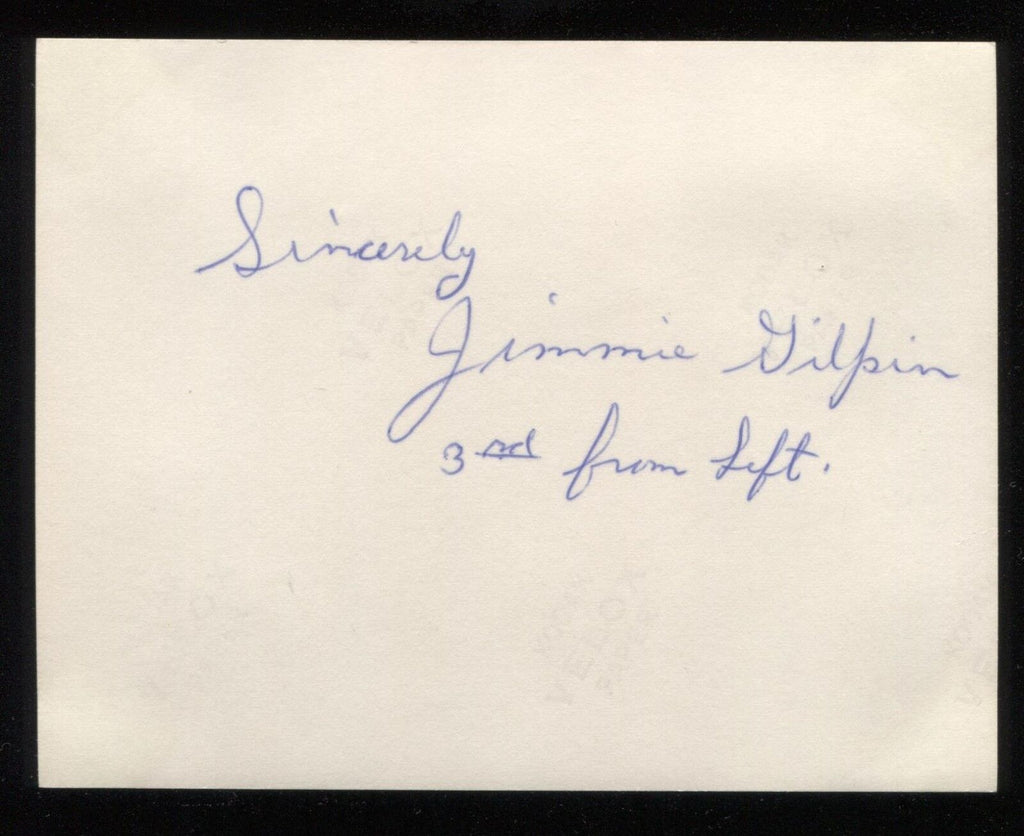 Sincerely
Jimmie Gilpin
3rd from Left.
VELOX